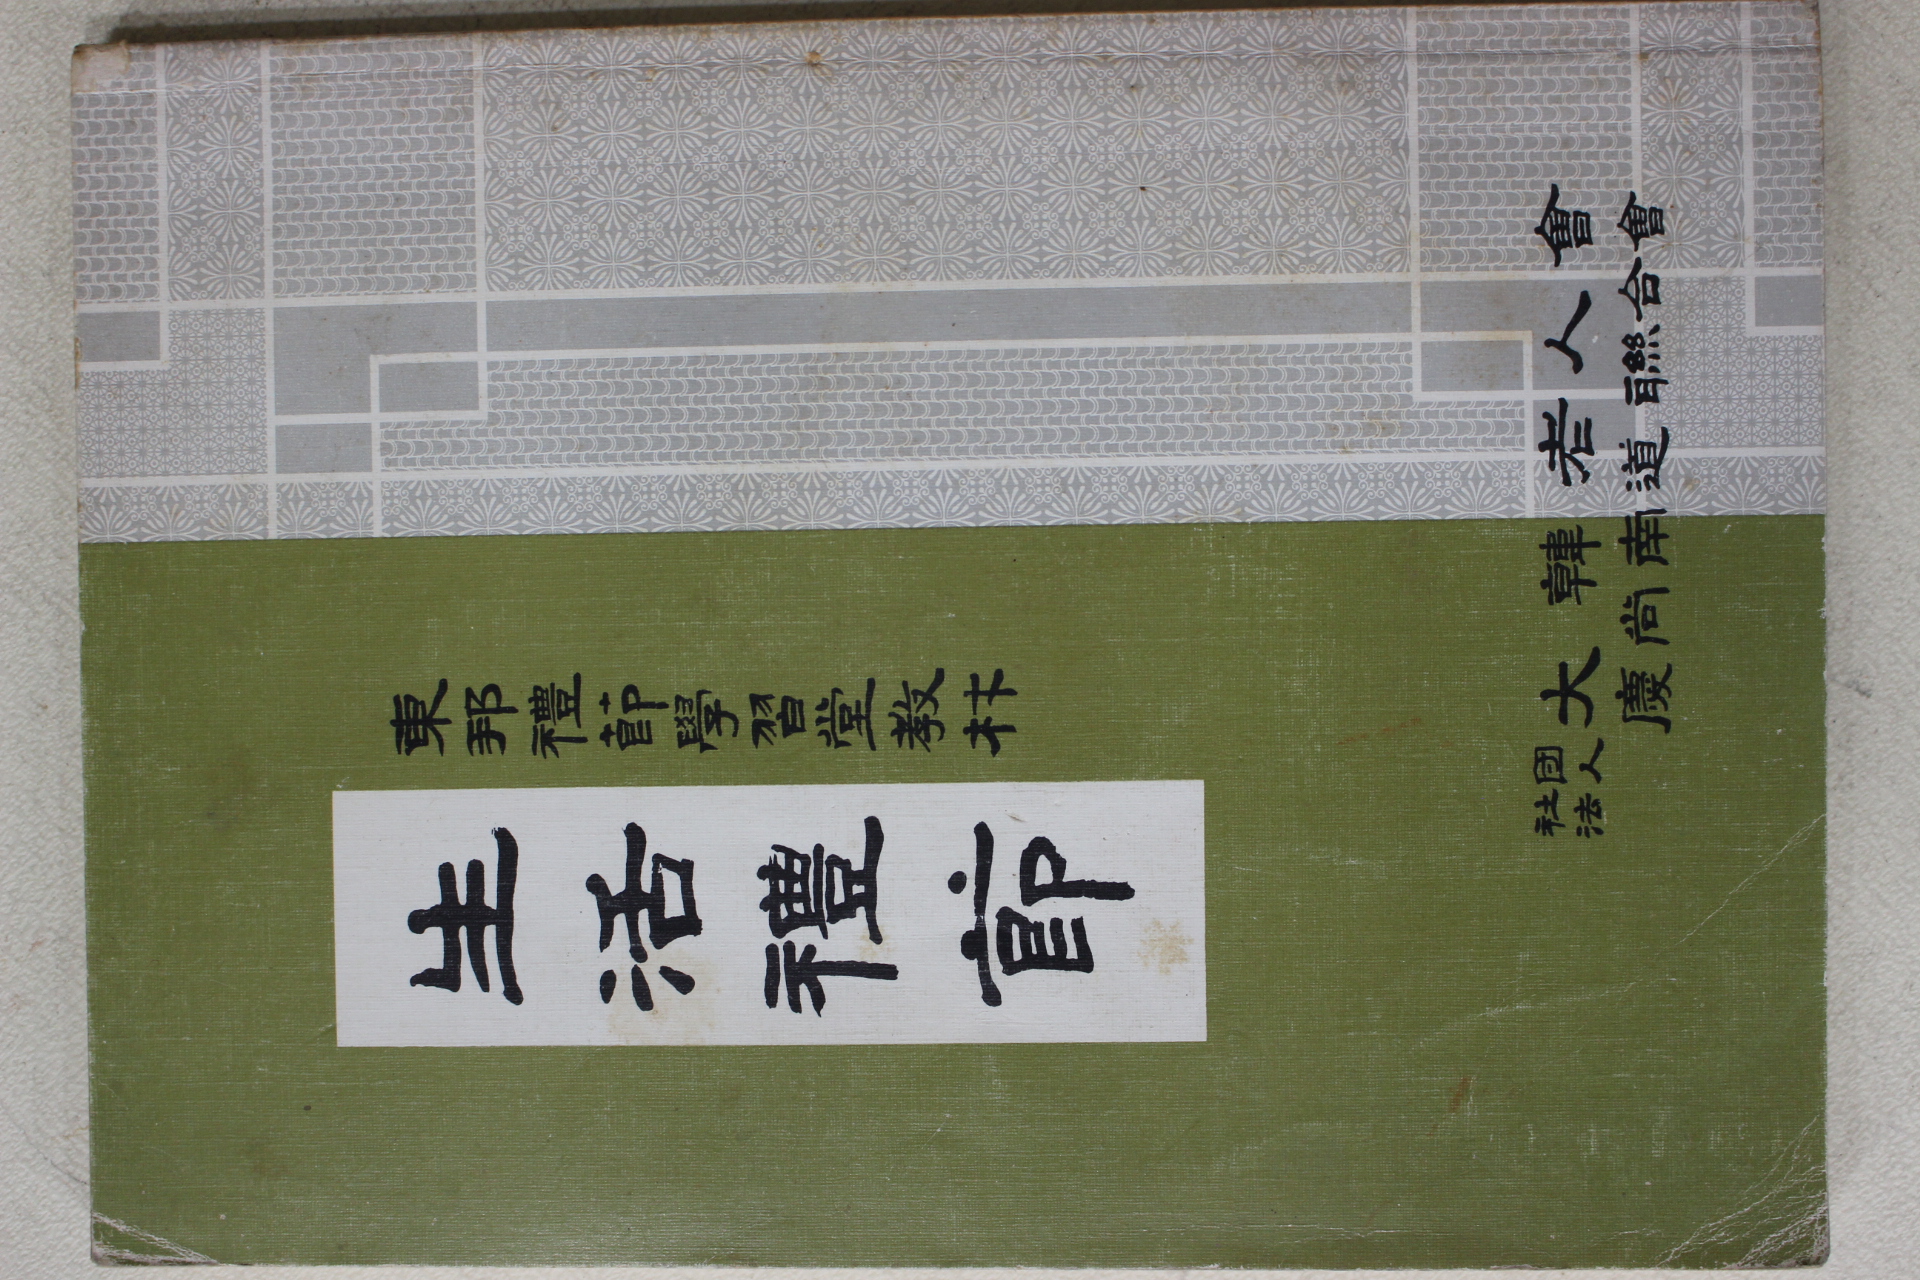 東邦禮節學習堂教材
生活禮節
社団法人 大韓老人會
慶尙南道聯合會